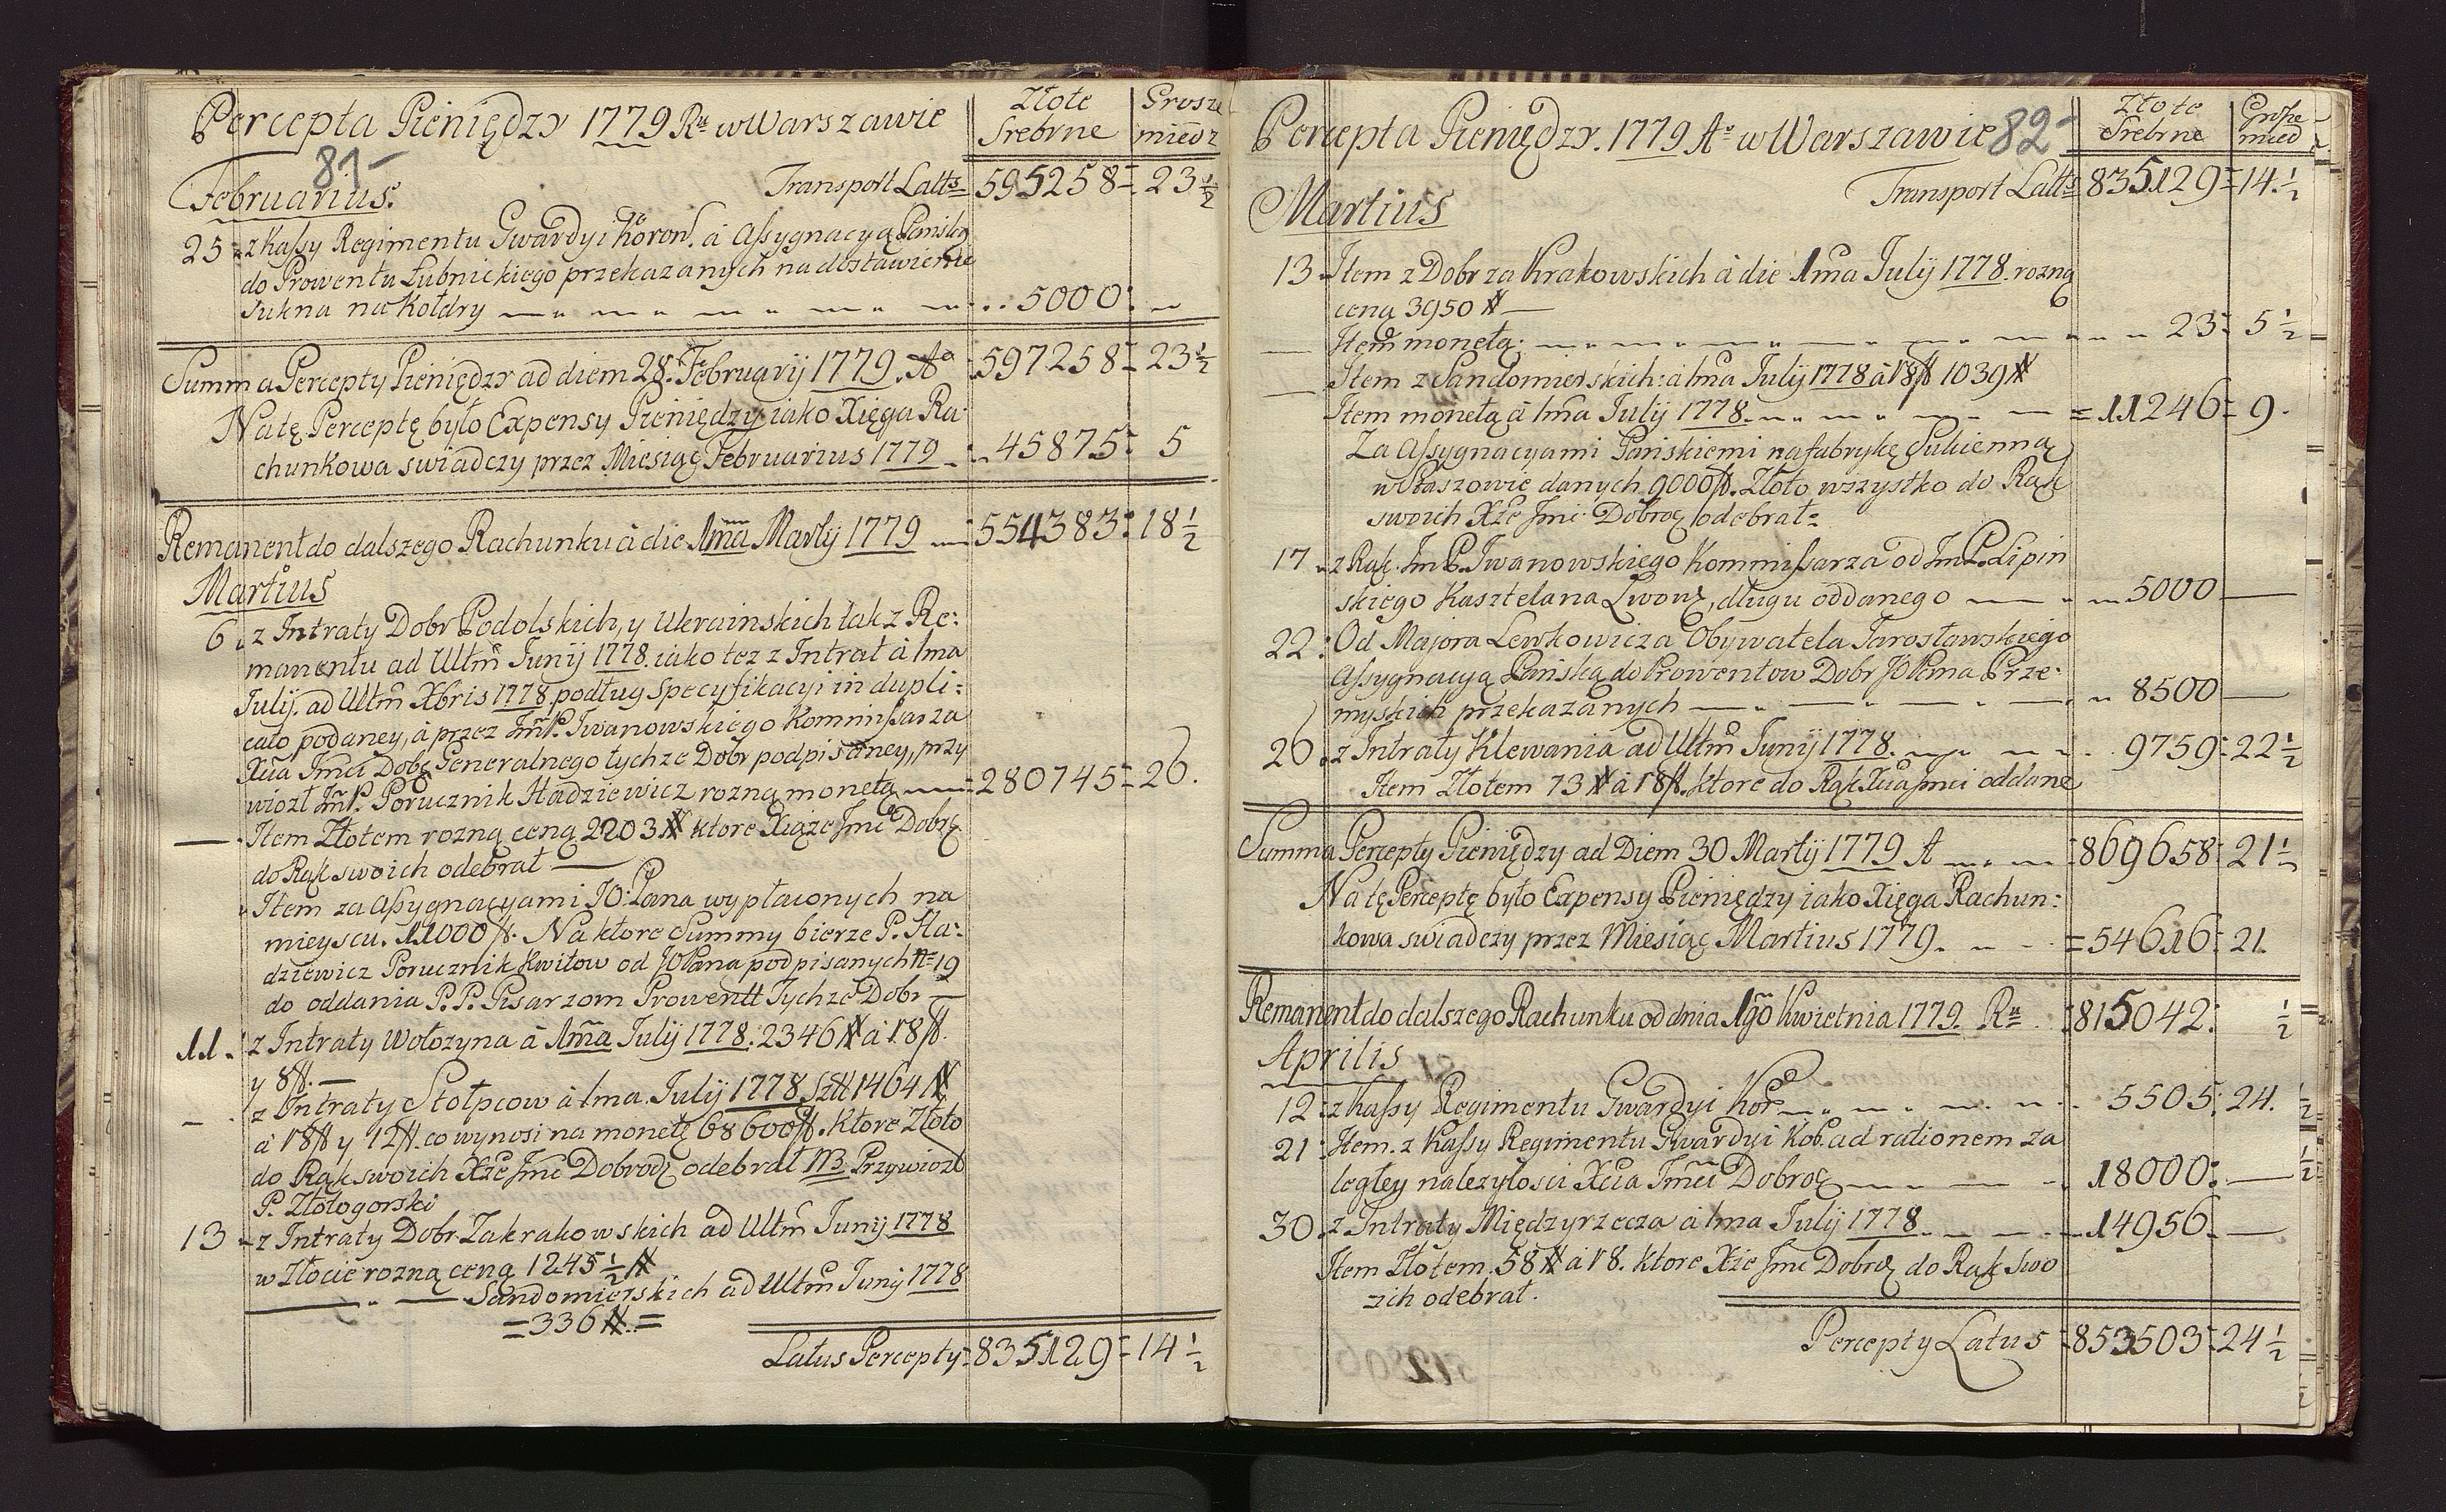 Percepta Pieniędzy 1779 Rᵘ w Warszawie
Złote Srebrne
Grosze miedz
81-
Februarius.
Transport Latts 595258 = 23 ½
25 = z Kassy Regimentu Gwardyi Koron. á Assygnacyą Pańską
do Prowentu Łubnickiego przekazanych na dostawienie
Sukna na Kołdry 5000:
Summa Percepty Pieniędzy ad diem 28. Februarij 1779. Aº 597258 = 23 ½
Na tę Perceptę było Expensy Pieniędzy iako Xięga Ra:
chunkowa swiadczy przez Miesiąc Februarius 1779 45875: 5
Remanent do dalszego Rachunku á die 1ma Martij 1779 554383: 18 ½
Martius
6. z Intraty Dobr Podolskich, y Ukrainskich tak z Re:
manentu ad Ultm Junij 1778. iako tez z Intrat á 1ma
Julij. ad Ultm Xbris 1778 podług Specyfikacyi in dupli:
cato podaney, á przez JmP. Iwanowskiego Kommissarza
Xcia Jmci Dobr. Generalnego tychze Dobr podpisaney, przy
wiozł JmP. Porucznik Hadziewicz rozną monetą = 280745 = 26.
— Item Złotem rozną ceną 2203 # ktore Xiąze Jmc Dobr.
do Rąk swoich odebrał —
Item za Assygnacyami JO: Pana wypłaconych na
mieyscu. 11000 f. Na ktore Summy bierze P. Ha:
dziewicz Porucznik Kwitow od JO Pana podpisanych Nº 19
do oddania P.P. Pisarzom Prowentt Tychze Dobr —
11. z Intraty Wołozyna á 1ma Julij 1778. 2346 # á 18 f.
y 8 f. —
— z Intraty Stołpcow á 1ma. Julij 1778 Sztt 1464 #
á 18 f y 12 f. co wynosi na monetę 68600 f. Ktore Złoto
do Rąk swoich Xże Jmc Dobrodz odebrał NB Przywiozł
P. Złotogorski
13 = z Intraty Dobr Zakrakowskich ad Ultm Junij 1778
w Złocie rozną ceną 1245 ½ #
— „ — Sandomierskich ad Ultm Junij 1778
= 336 #. =
Latus Percepty = 835129 = 14 ½
Percepta Pieniędzy. 1779 Aº w Warszawie 82-
Złote Srebrne
Grosze mied
Transport Latts 835129 = 14. ½
Martius
13 Item z Dobr za Krakowskich á die 1ma Julij 1778. rozną
ceną 3950 # —
— Item monetą: 23: 5 ½
— Item z Sandomierskich: á 1ma Julij 1778 á 18 f 1039 #
Item monetą á 1ma Julij 1778. = 11246 = 9.
Za Assygnacyami Pańskiemi na fabrykę Sukienną
w Staszowie danych 9000 f. Złoto wszystko do Rąk
swoich Xże Jmc Dobrodz odebrał =
17 = z Rąk JmP. Iwanowskiego Kommissarza od JmP. Lipin
skiego Kasztelana Lwow, długu oddanego 5000 —
22: Od Majora Lewkowicza Obywatela Jarosławskiego
Assygnacyą Pańską do Prowentow Dobr JO Pana Prze:
myskich przekazanych 8500 —
26. z Intraty Klewania ad Ultm Junij 1778. 9759: 22 ½
Item Złotem 73 # á 18 f. ktore do Rąk Xcia Jmci oddane
Summa Percepty Pieniędzy ad Diem 30 Martij 1779 A = 869658: 21 ½
Na tę Perceptę było Expensy Pieniędzy iako Xięga Rachun:
kowa swiadczy przez Miesiąc Martius 1779. = 54616: 21.
Remanent do dalszego Rachunku od dnia 1go Kwietnia 1779. Rᵘ. 815042: ½
Aprilis
12: z Kassy Regimentu Gwardyi Kor. 5505: 24.
21: Item. z Kassy Regimentu Gwardyi Ko. ad rationem za
ległey nalezytosci Xcia Jmci Dobrodz 18000: —
30. z Intraty Międzyrzecza á 1ma Julij 1778 14956. —
Item Złotem. 58 # á 18. ktore Xże Jmc Dobrdz do Rąk Swo
ich odebrał.
Percepty Latus = 853503 = 24 ½